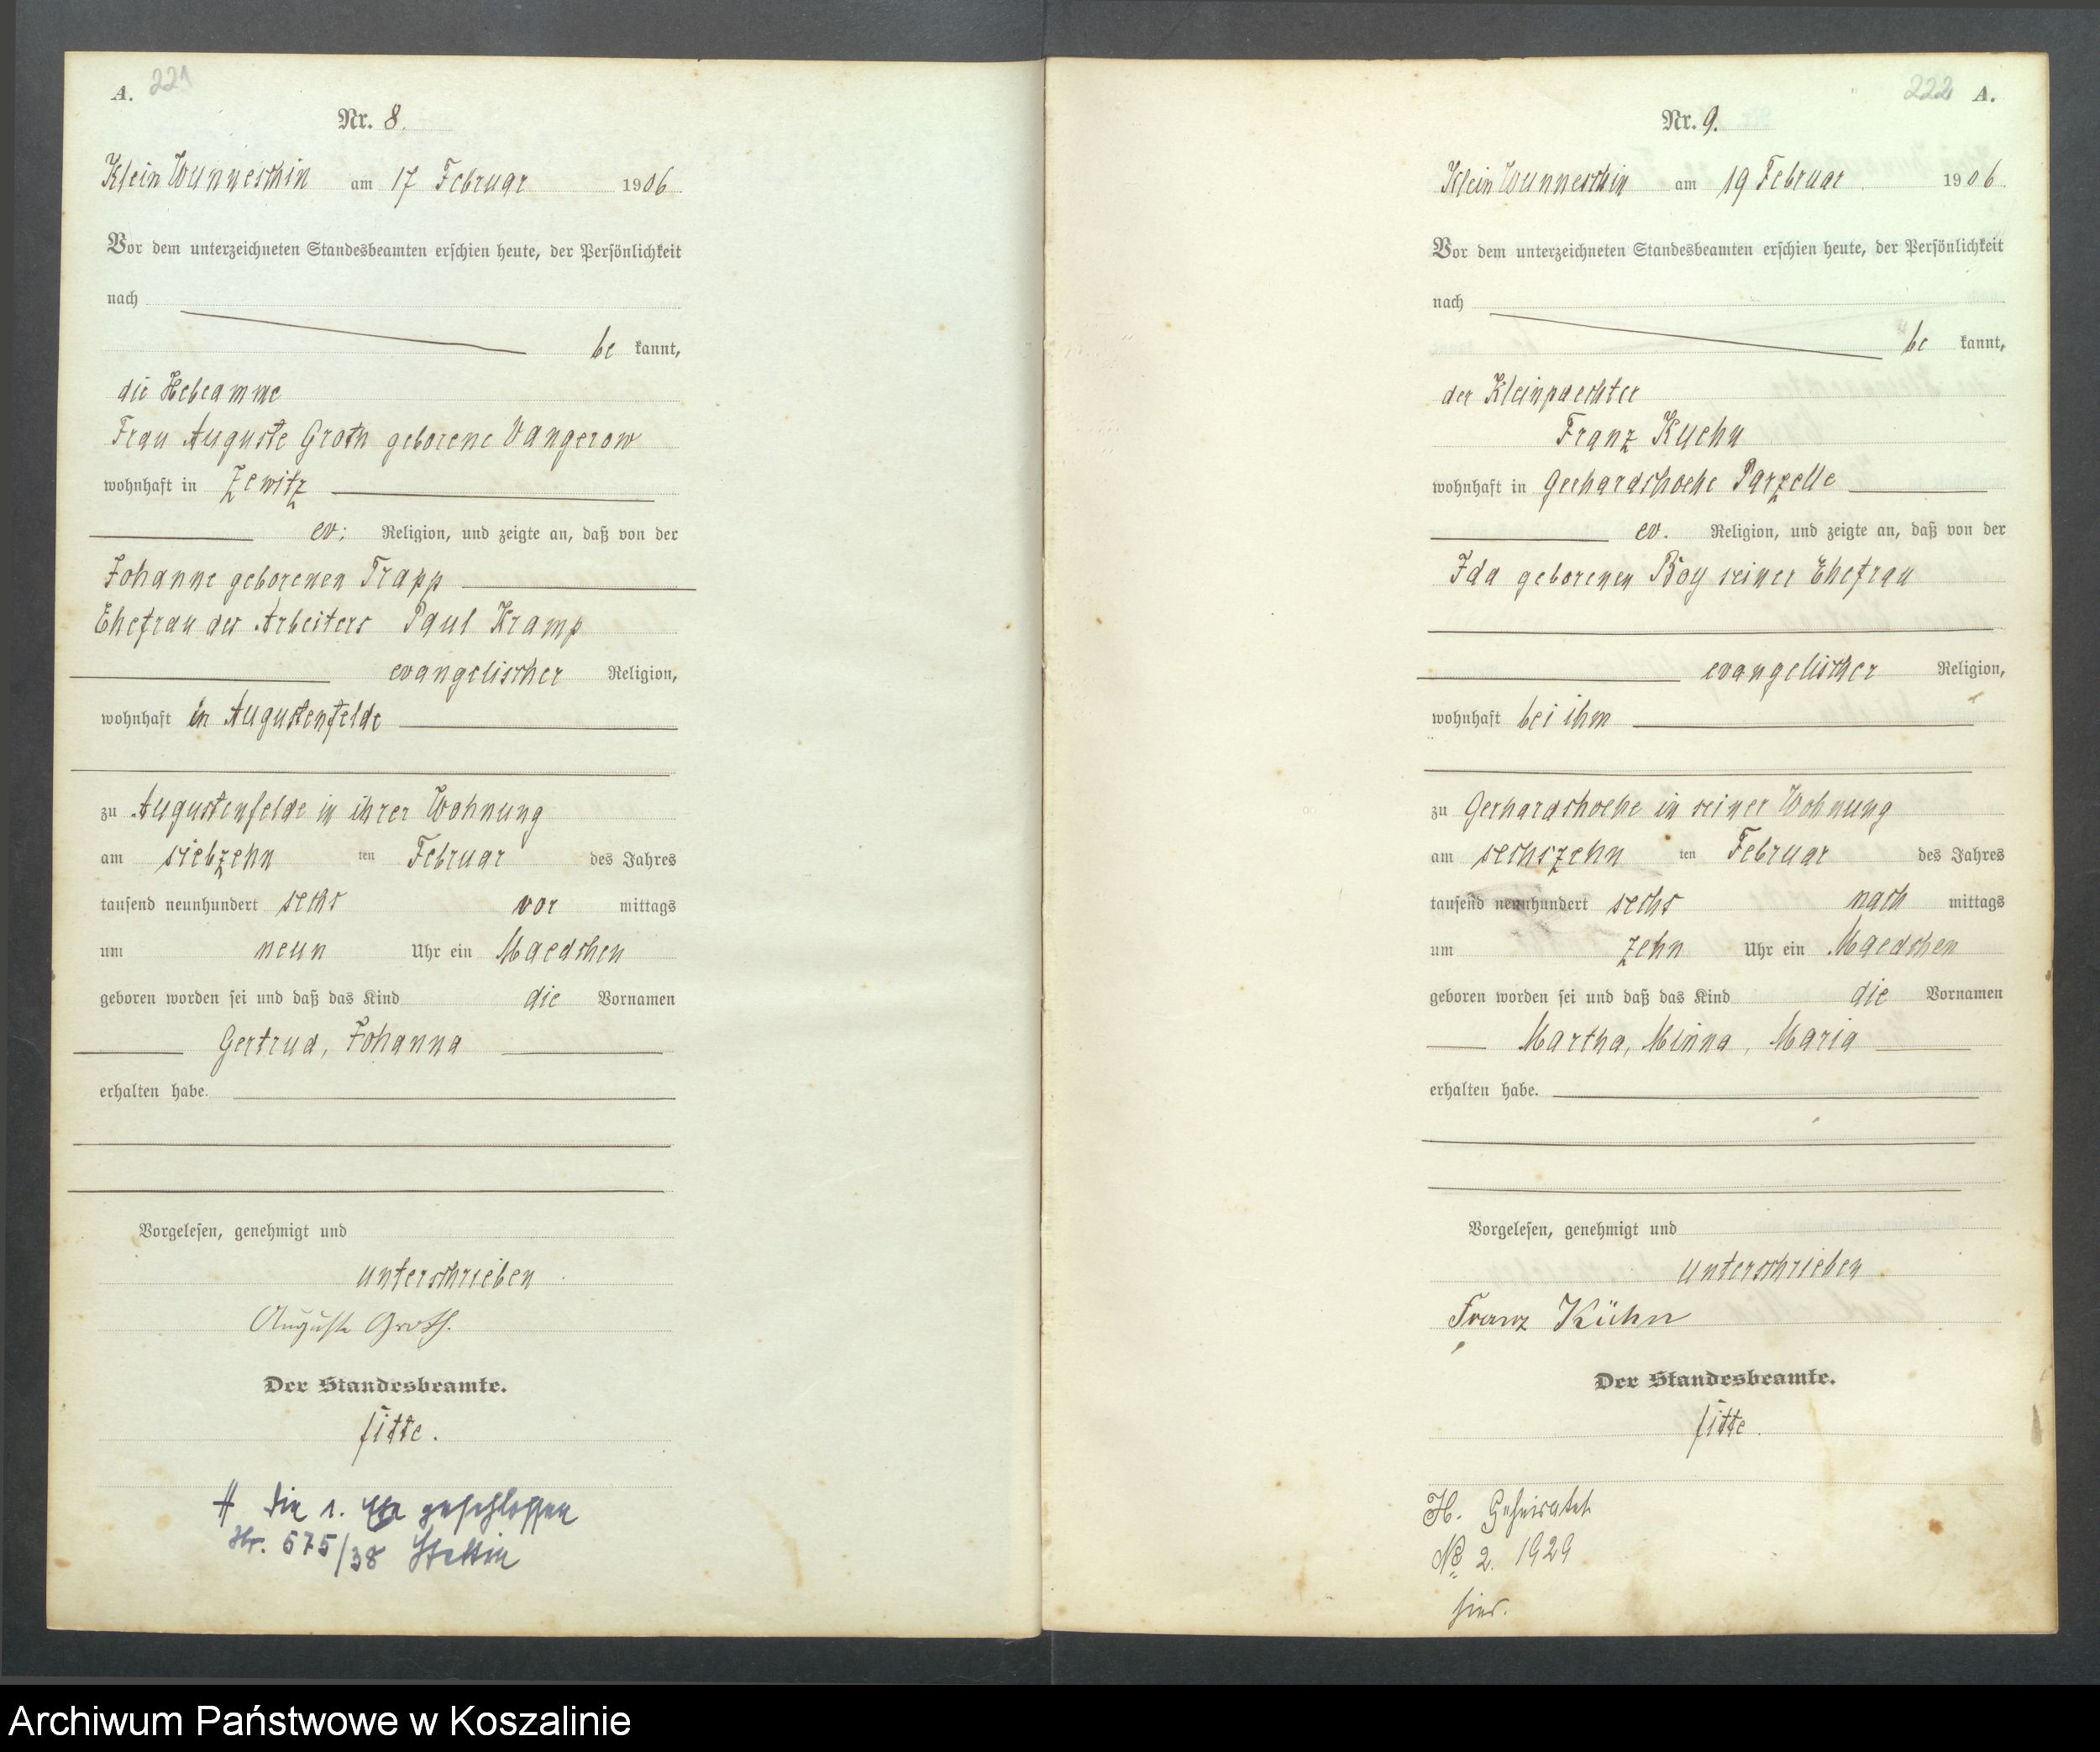 A. 221
Nr. 8.
Klein Wunneschin am 17 Februar 1906
Vor dem unterzeichneten Standesbeamten erschien heute, der Persönlichkeit
nach
be kannt,
die Hebeamme
Frau Auguste Groth geborene Vangerow
wohnhaft in Zewitz
ev: Religion, und zeigte an, daß von der
Johanne geborenen Trapp
Ehefrau des Arbeiters Paul Kramp
evangelischer Religion,
wohnhaft in Augustenfelde
zu Augustenfelde in ihrer Wohnung
am siebzehn ten Februar des Jahres
tausend neunhundert sechs vor mittags
um neun Uhr ein Maedchen
geboren worden sei und daß das Kind die Vornamen
Gertrud, Johanna
erhalten habe.
Vorgelesen, genehmigt und
unterschrieben
Auguste Groth.
Der Standesbeamte.
Fitte.
die 1. Ehe geschlossen
Nr. 575/38 Stettin
222 A.
Nr. 9.
Klein Wunneschin am 19 Februar 1906.
Vor dem unterzeichneten Standesbeamten erschien heute, der Persönlichkeit
nach
be kannt,
der Kleinpaechter
Franz Kuehn
wohnhaft in Gerhardshoehe Parzelle
ev. Religion, und zeigte an, daß von der
Ida geborenen Boy seiner Ehefrau
evangelischer Religion,
wohnhaft bei ihm
zu Gerhardshoehe in seiner Wohnung
am sechszehn ten Februar des Jahres
tausend neunhundert sechs nach mittags
um zehn Uhr ein Maedchen
geboren worden sei und daß das Kind die Vornamen
Martha, Minna, Maria
erhalten habe.
Vorgelesen, genehmigt und
unterschrieben
Franz Kühn
Der Standesbeamte.
Fitte.
H. Geheiratet
No 2. 1929
hier.
Archiwum Państwowe w Koszalinie